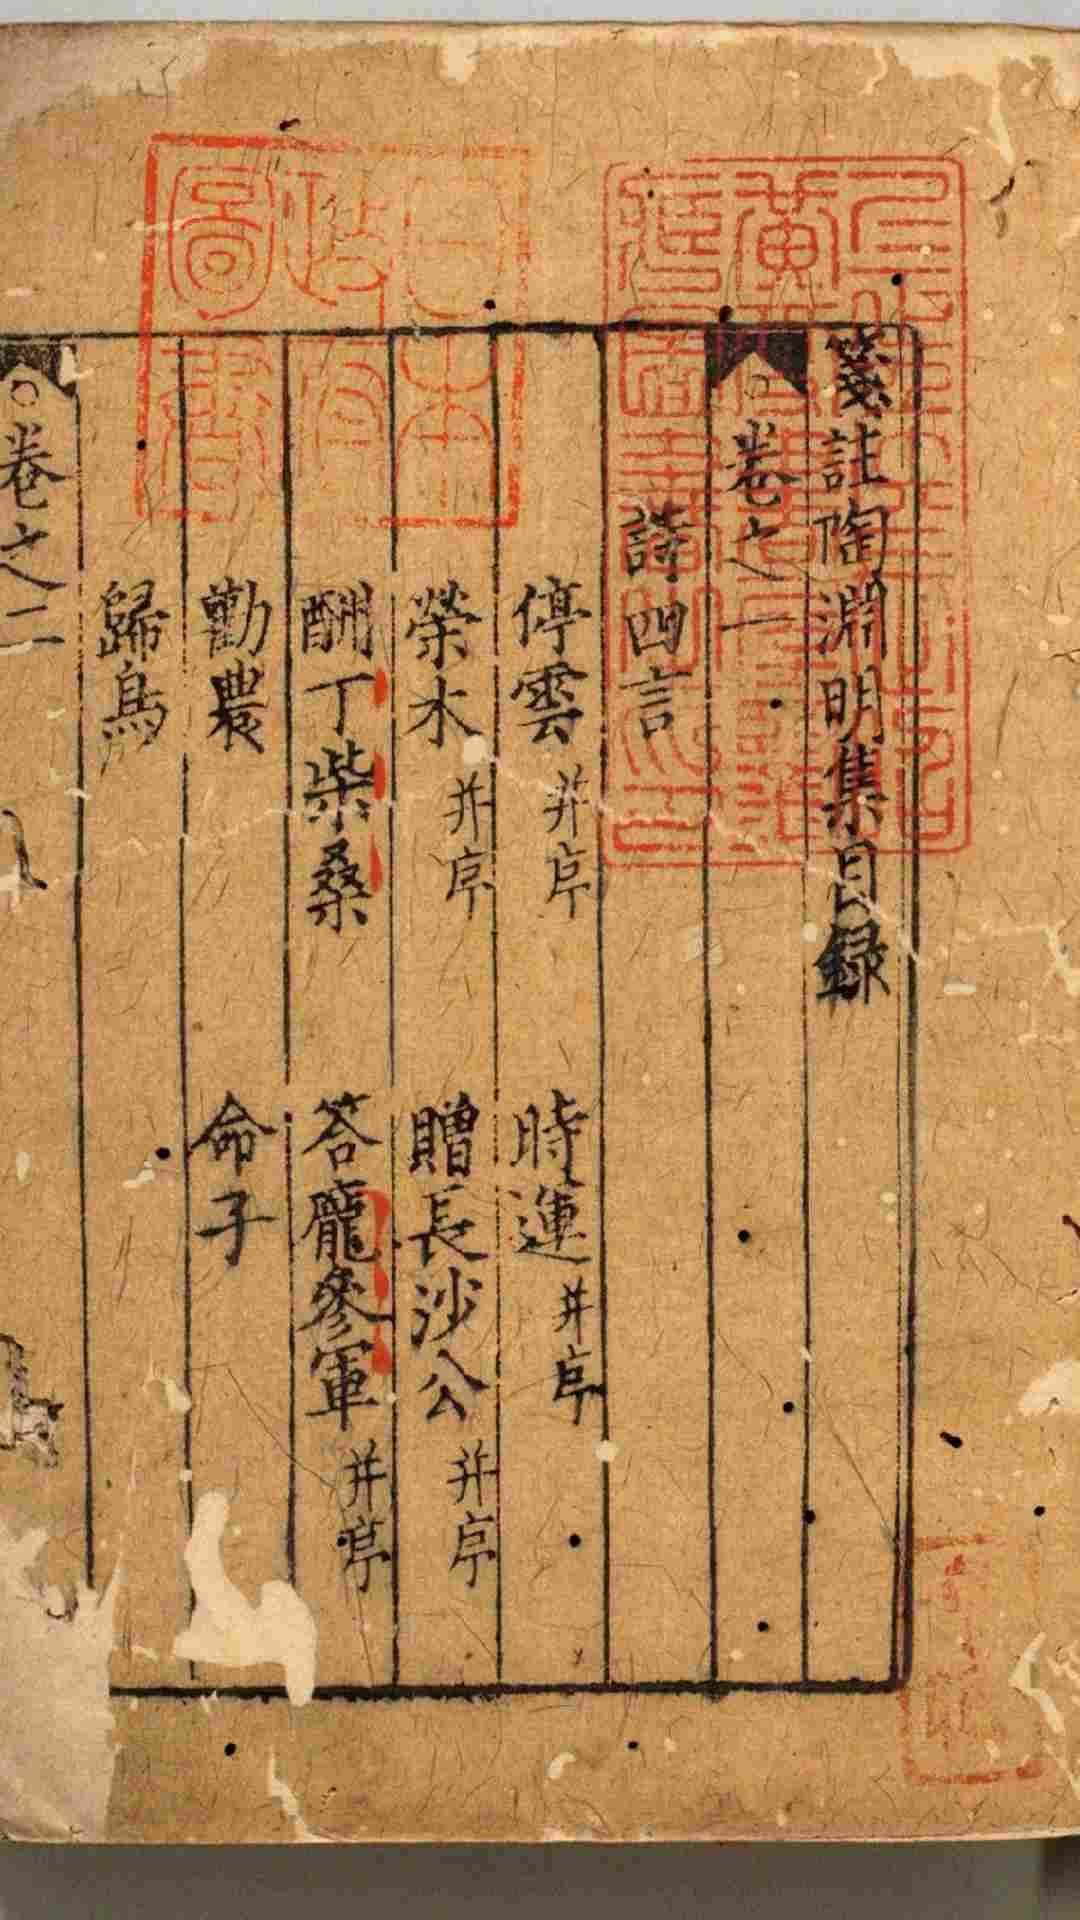 箋註陶淵明集目録
○卷之一
詩四言
停雲并序
時運并序
榮木并序
贈長沙公并序
酬丁柴桑
答龐參軍并序
勸農
命子
歸鳥
○卷之二
日本
政府
圖書